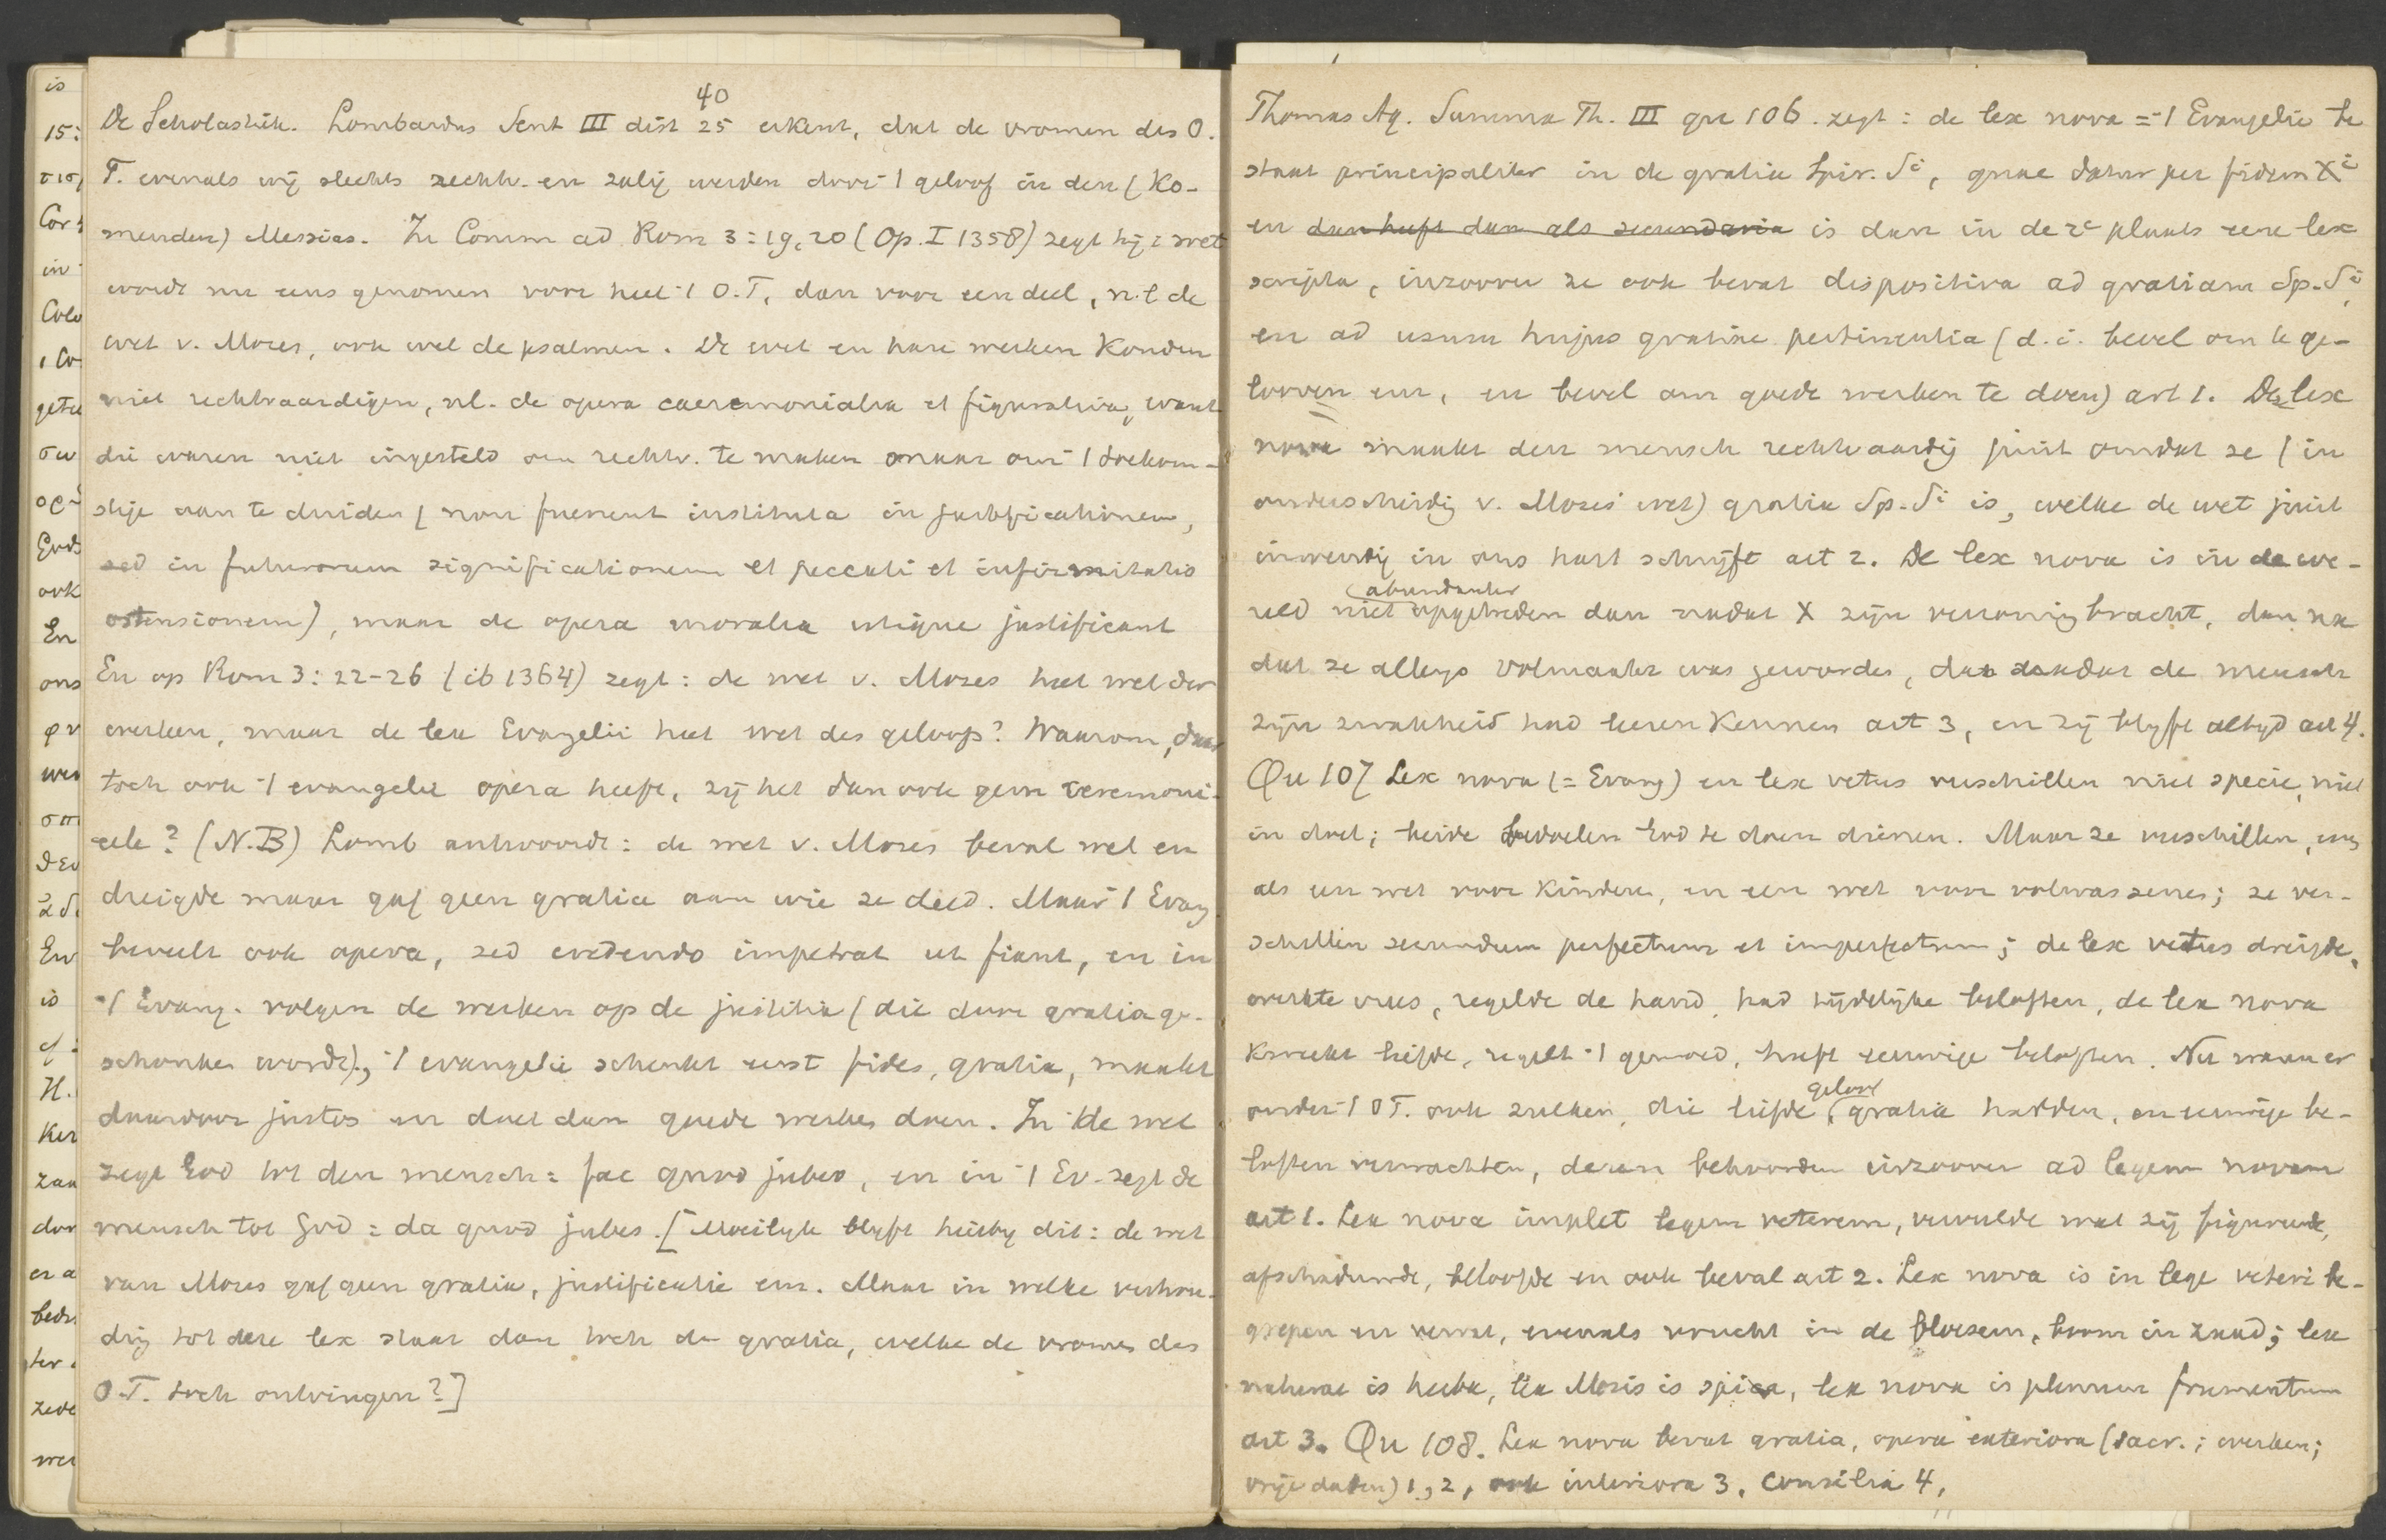 De Scholastiek. Lombardus Sent III dist 25 40 erkent, dat de vromen des O.
T. evenals wij slechts rechtv. en zalig werden door 't geloof in den (ko-
menden) Messias. In Comm ad Rom 3:19,20 (Op. I 1358) zegt hij: wet
wordt nu eens genomen voor heel 't O.T, dan voor een deel, n.l de
wet v. Mozes, ook wel de psalmen. De wet en hare werken konden
niet rechtvaardigen, nl. de opera caeremonialia et figurativa, want
die waren niet ingesteld om rechtv. te maken maar om 't toekom-
stige aan te duiden (non fuerunt instituta in justificationem,
sed in futurorum significationem et peccati et infirmitatis
ostensionem), maar de opera moralia utique justificant
En op Rom 3:22-26 (ib 1364) zegt: de wet v. Mozes heet wet der
werken, maar de lex Evangelii heet wet des geloofs? Waarom, daar
toch ook 't evangelie opera heeft, zij het dan ook geen ceremoni-
eele? (N.B) Lomb antwoordt: de wet v. Mozes beval wel en
dreigde maar gaf geen gratia aan wie ze deed. Maar 't Evang
beveelt ook opera, sed credendo impetrat ut fiant, en in
't Evang. volgen de werken op de justitia (die door gratia ge-
schonken wordt), 't evangelie schenkt eerst fides, gratia, maakt
daardoor justos en doet dan goede werken doen. In de wet
zegt God tot den mensch: fac quod jubeo, en in 't Ev. zegt de
mensch tot God: da quod jubes. [Moeilijk blijft hierbij dit: de wet
van Mozes gaf geen gratia, justificatie enz. Maar in welke verhou-
ding tot deze lex staat dan toch de gratia, welke de vromen des
O.T. toch ontvingen?]
Thomas Aq. Summa Th. III qu 106. zegt: de lex nova = 't Evangelie be
staat principaliter in de gratia Spir. Si, quae datur per fidem Xi
en dan heeft dan als secundaria is dan in de 2e plaats eene lex
scripta, inzoover ze ook bevat dispositiva ad gratiam Sp. Si,
en ad usum hujus gratiae pertinentia (d.i. bevel om te ge-
looven enz, en bevel om goede werken te doen) art 1. De lex
nova maakt den mensch rechtvaardig juist omdat ze (in
onderscheidig v. Mozes' wet) gratia Sp. Si is, welke de wet juist
inwendig in ons hart schrijft art 2. De lex nova is in de we-
reld niet abundanter opgetreden dan nadat X zijn verzoening bracht, dan na
dat ze allengs volmaakter was geworden, dan nadat de mensch
zijn zwakheid had leeren kennen art 3, en zij blijft altijd art 4.
Qu 107 Lex nova (= Evang) en lex vetus verschillen niet specie, niet
in doel; beide bedoelen God te doen dienen. Maar ze verschillen, ens
als een wet voor kinderen, en een wet voor volwassenen; ze ver-
schillen secundum perfectum et imperfectum; de lex vetus dreigde,
werkte vrees, regelde de hand, had tijdelijke beloften, de lex nova
kweekt liefde, regelt 't gemoed, heeft eeuwige beloften. Nu waren er
onder 't OT. ook zulken, die liefde, geloof gratia hadden, en eeuwige be-
loften verwachtten, dezen behoorden inzoover ad legem novam
art 1. Lex nova implet legem veterem, vervulde wat zij figureerde,
afschaduwde, beloofde en ook beval art 2. Lex nova is in lege veteri be-
grepen en vervat, evenals vrucht in de bloesem, boom in zaad; lex
naturae is herba, lex Mosis is spica, lex nova is plenum frumentum
art 3. Qu 108. Lex nova bevat gratia, opera exteriora (sacr.; werken;
vrije daden) 1, 2, ook interiora 3, consilia 4,